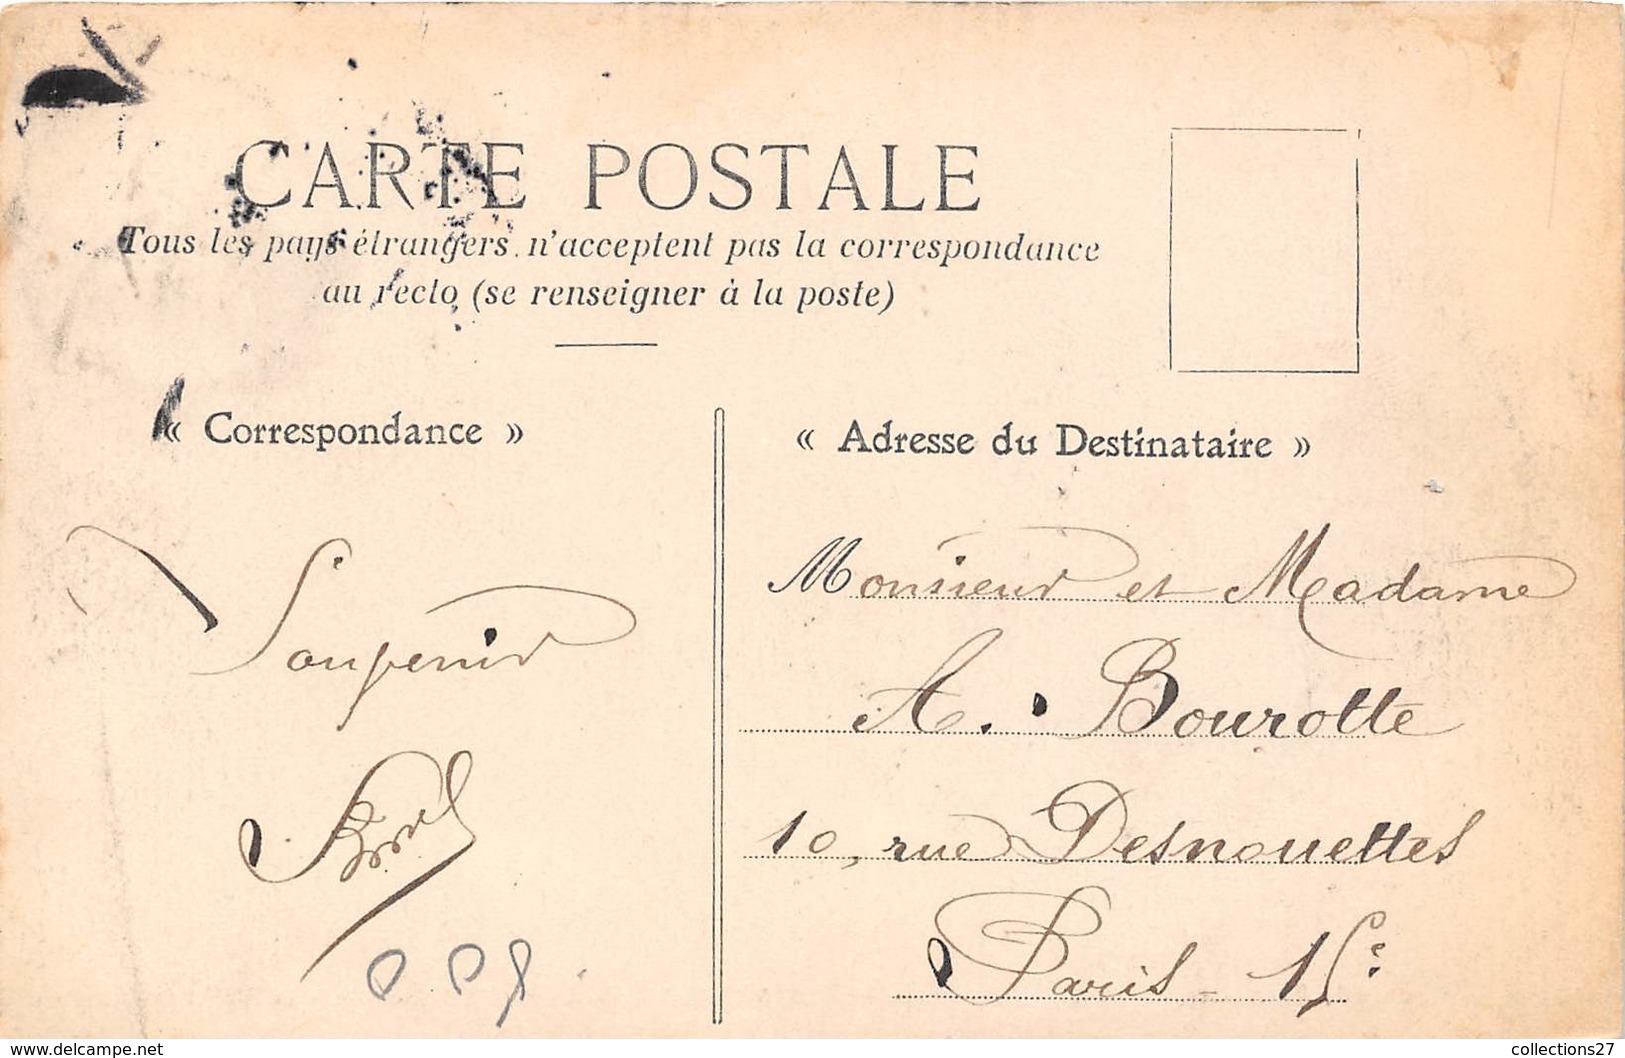 CARTE POSTALE
Tous les pays étrangers n'acceptent pas la correspondance
au recto (se renseigner à la poste)
« Correspondance »
Souvenir
« Adresse du Destinataire »
Monsieur et Madame
A. Bourotte
10, rue Desnouettes
Paris - 15e
https://www.delcampe.net
collections27